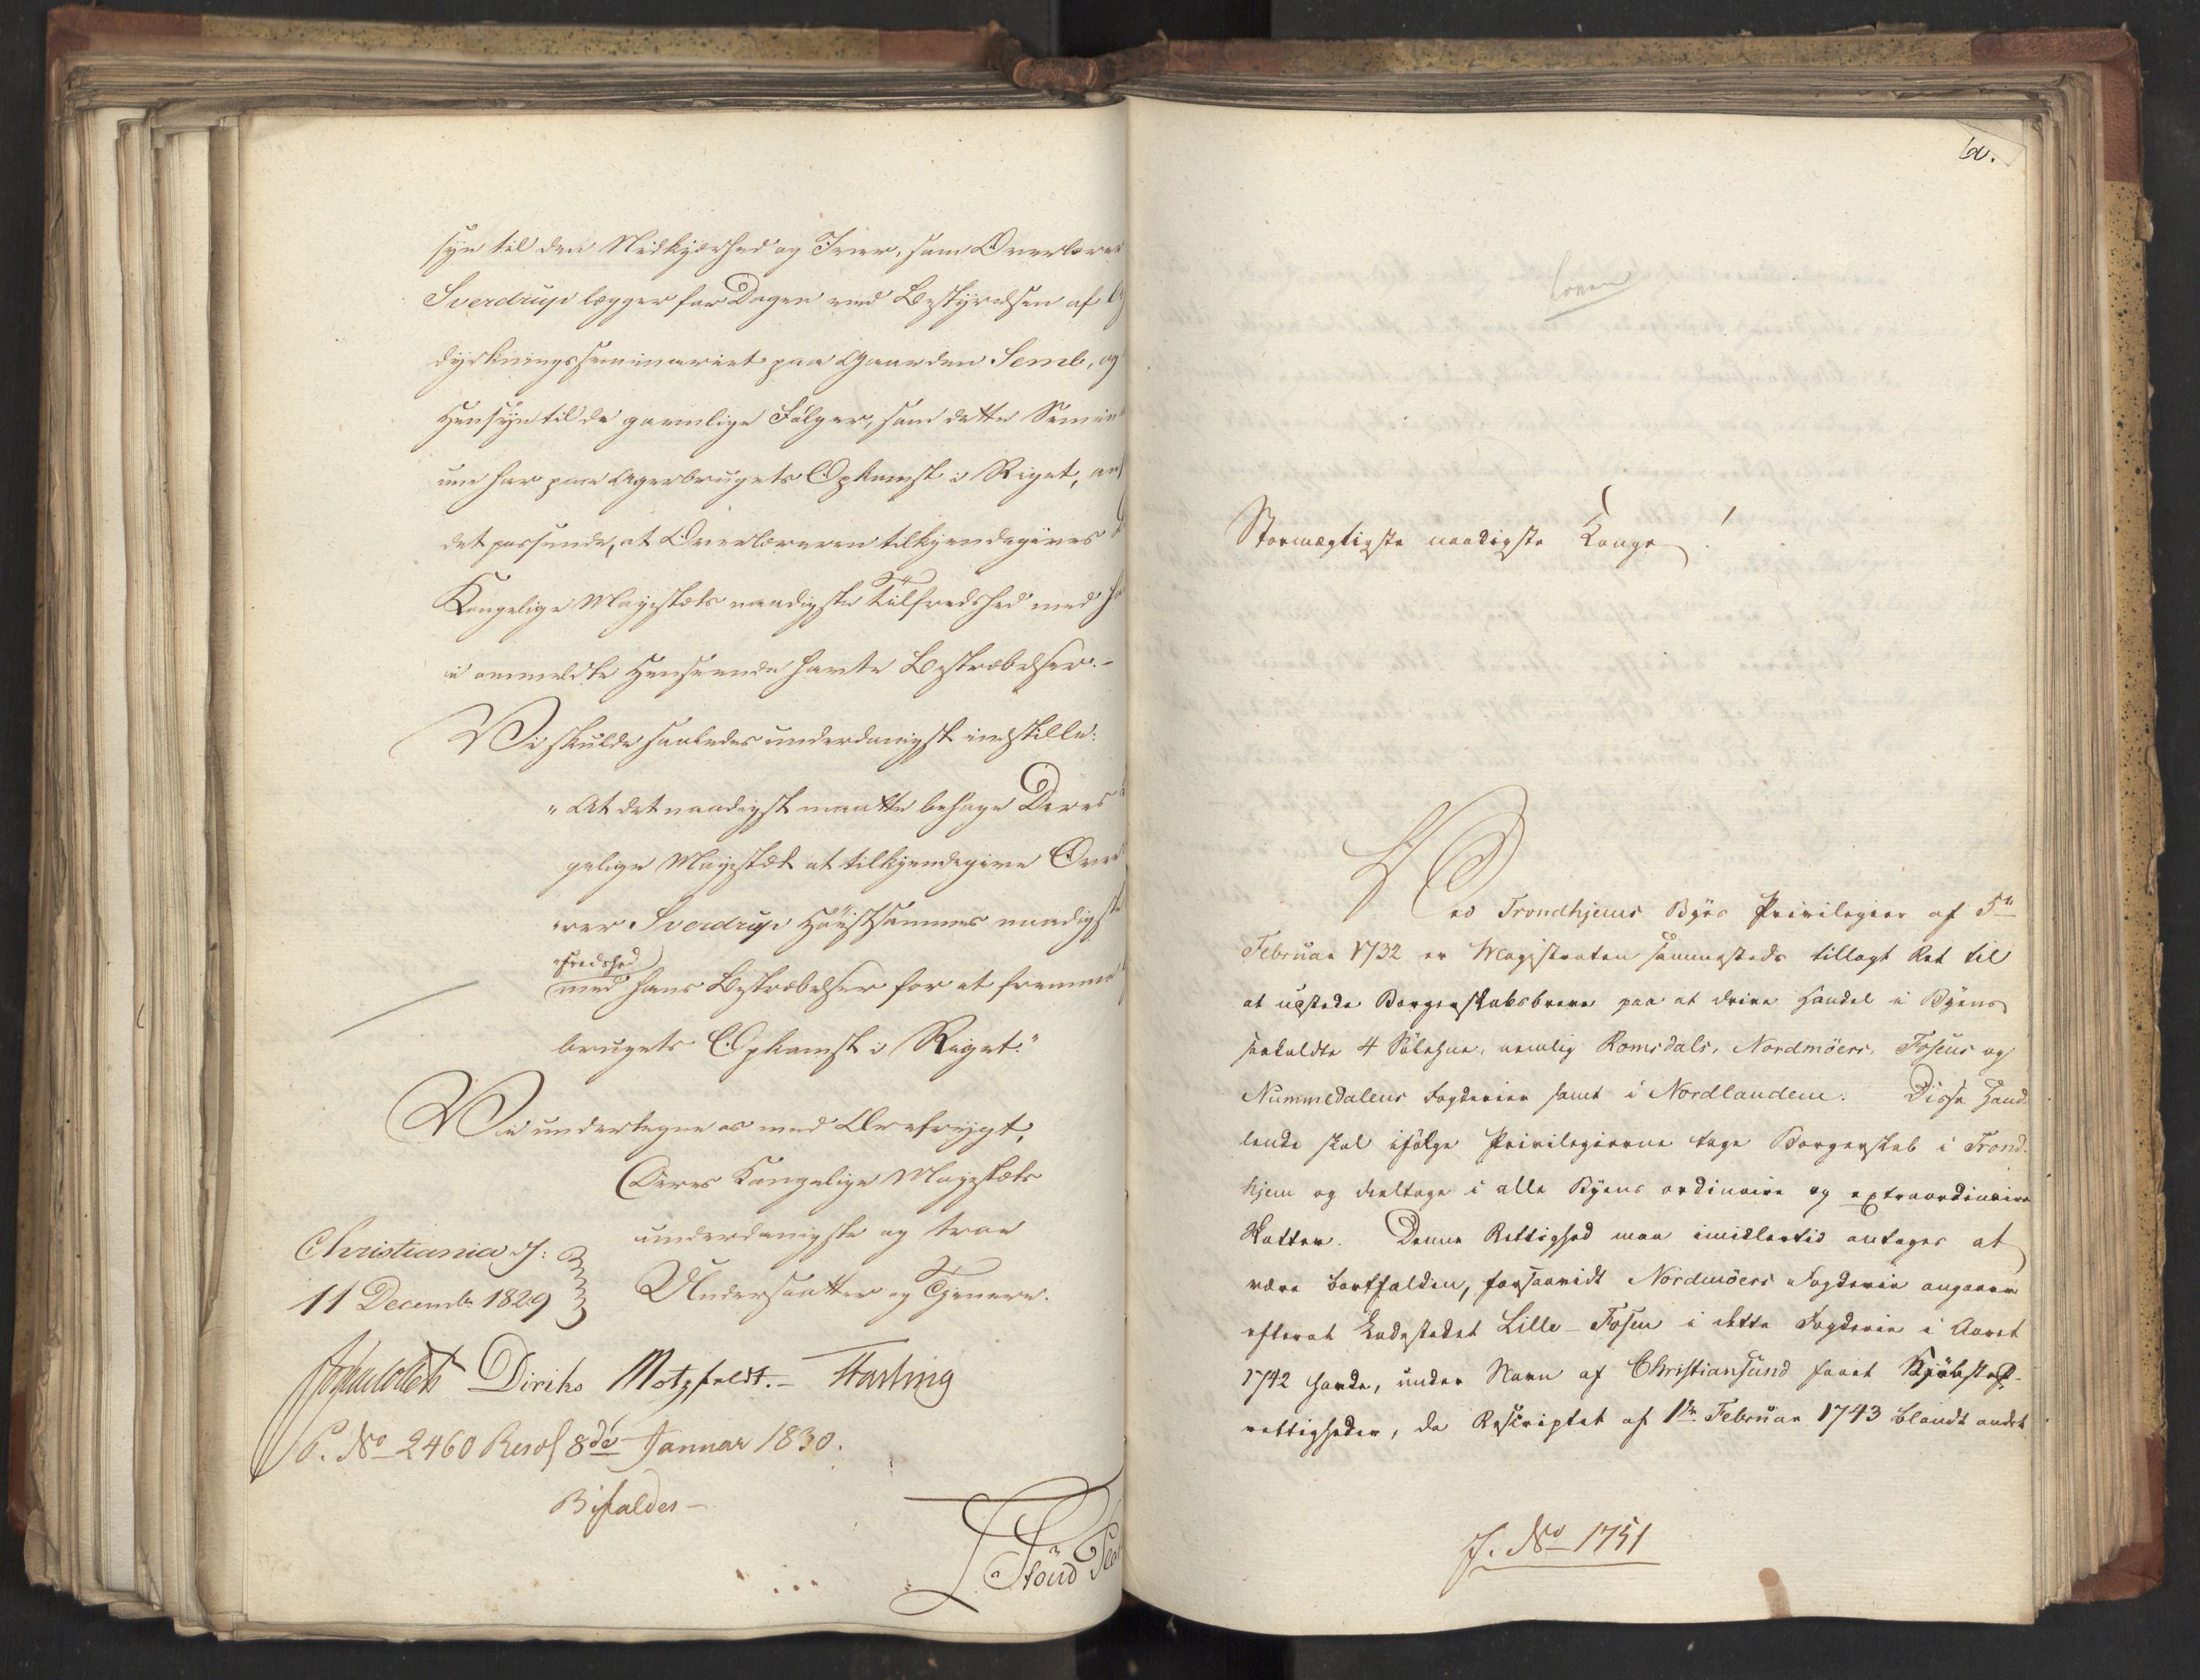 syn til den Nidkjærhed og Iver, som Overlærer
Sverdrup lægger for Dagen ved Bestyrelsen af
dyrkningsseminariet paa Gaarden Semb, og
Hensyn til de gavnlige Følger, som dette Semin
um har paa Agerbrugets Opkomst i Riget, an
det passende, at Overlæreren tilkjendegives
Kongelige Majestæts naadigste Tilfredshed med ha
i anmeldte Henseende havte Bestræbelser. -
Vi skulde saaledes underdanigst indstille:
"At det naadigst maatte behage Deres
gelige Majestæt at tilkjendegive Over
rer Sverdrup Høistsammes naadigste
fredshed
med hans Bestræbelser for at fremme
brugets Opkomst i Riget."
Vi undertegne os med Ærefrygt,
Deres Kongelige Majestæts
underdanigste og troe
Undersaatter og Tjenere.
Christiania d:
11 Decembr 1829
Diriks Motzfeldt. - Fasting
P. No 2460 Resol 8de Januar 1830.
Bifaldes -
Stormægtigste naadigste Konge!
Ved Trondhjems Byes Privilegier af 5te
Februar 1732 er Magistraten sammesteds tillagt Ret til
at udstede Borgerskabsbreve paa at drive Handel i Byens
saakaldte 4 Søelehne, nemlig Romsdals, Nordmöers, Fosens og
Nummedalens Fogderier samt i Nordlandene. Disse Hand-
lende skal ifølge Privilegierne tage Borgerskab i Trond-
hjem og deeltage i alle Byens ordinaire og extraordinaire
Skatter. Denne Rettighed maa imidlertid antages at
være bortfalden, forsaavidt Nordmöers Fogderie angaaer
efterat Ladestedet Lille-Fosen i dette Fogderie i Aaret
1742 havde, under Navn af Christiansund faaet Kjøbstad-
rettigheder, da Rescriptet af 1te Februar 1743 blandt andet
J. No 1751